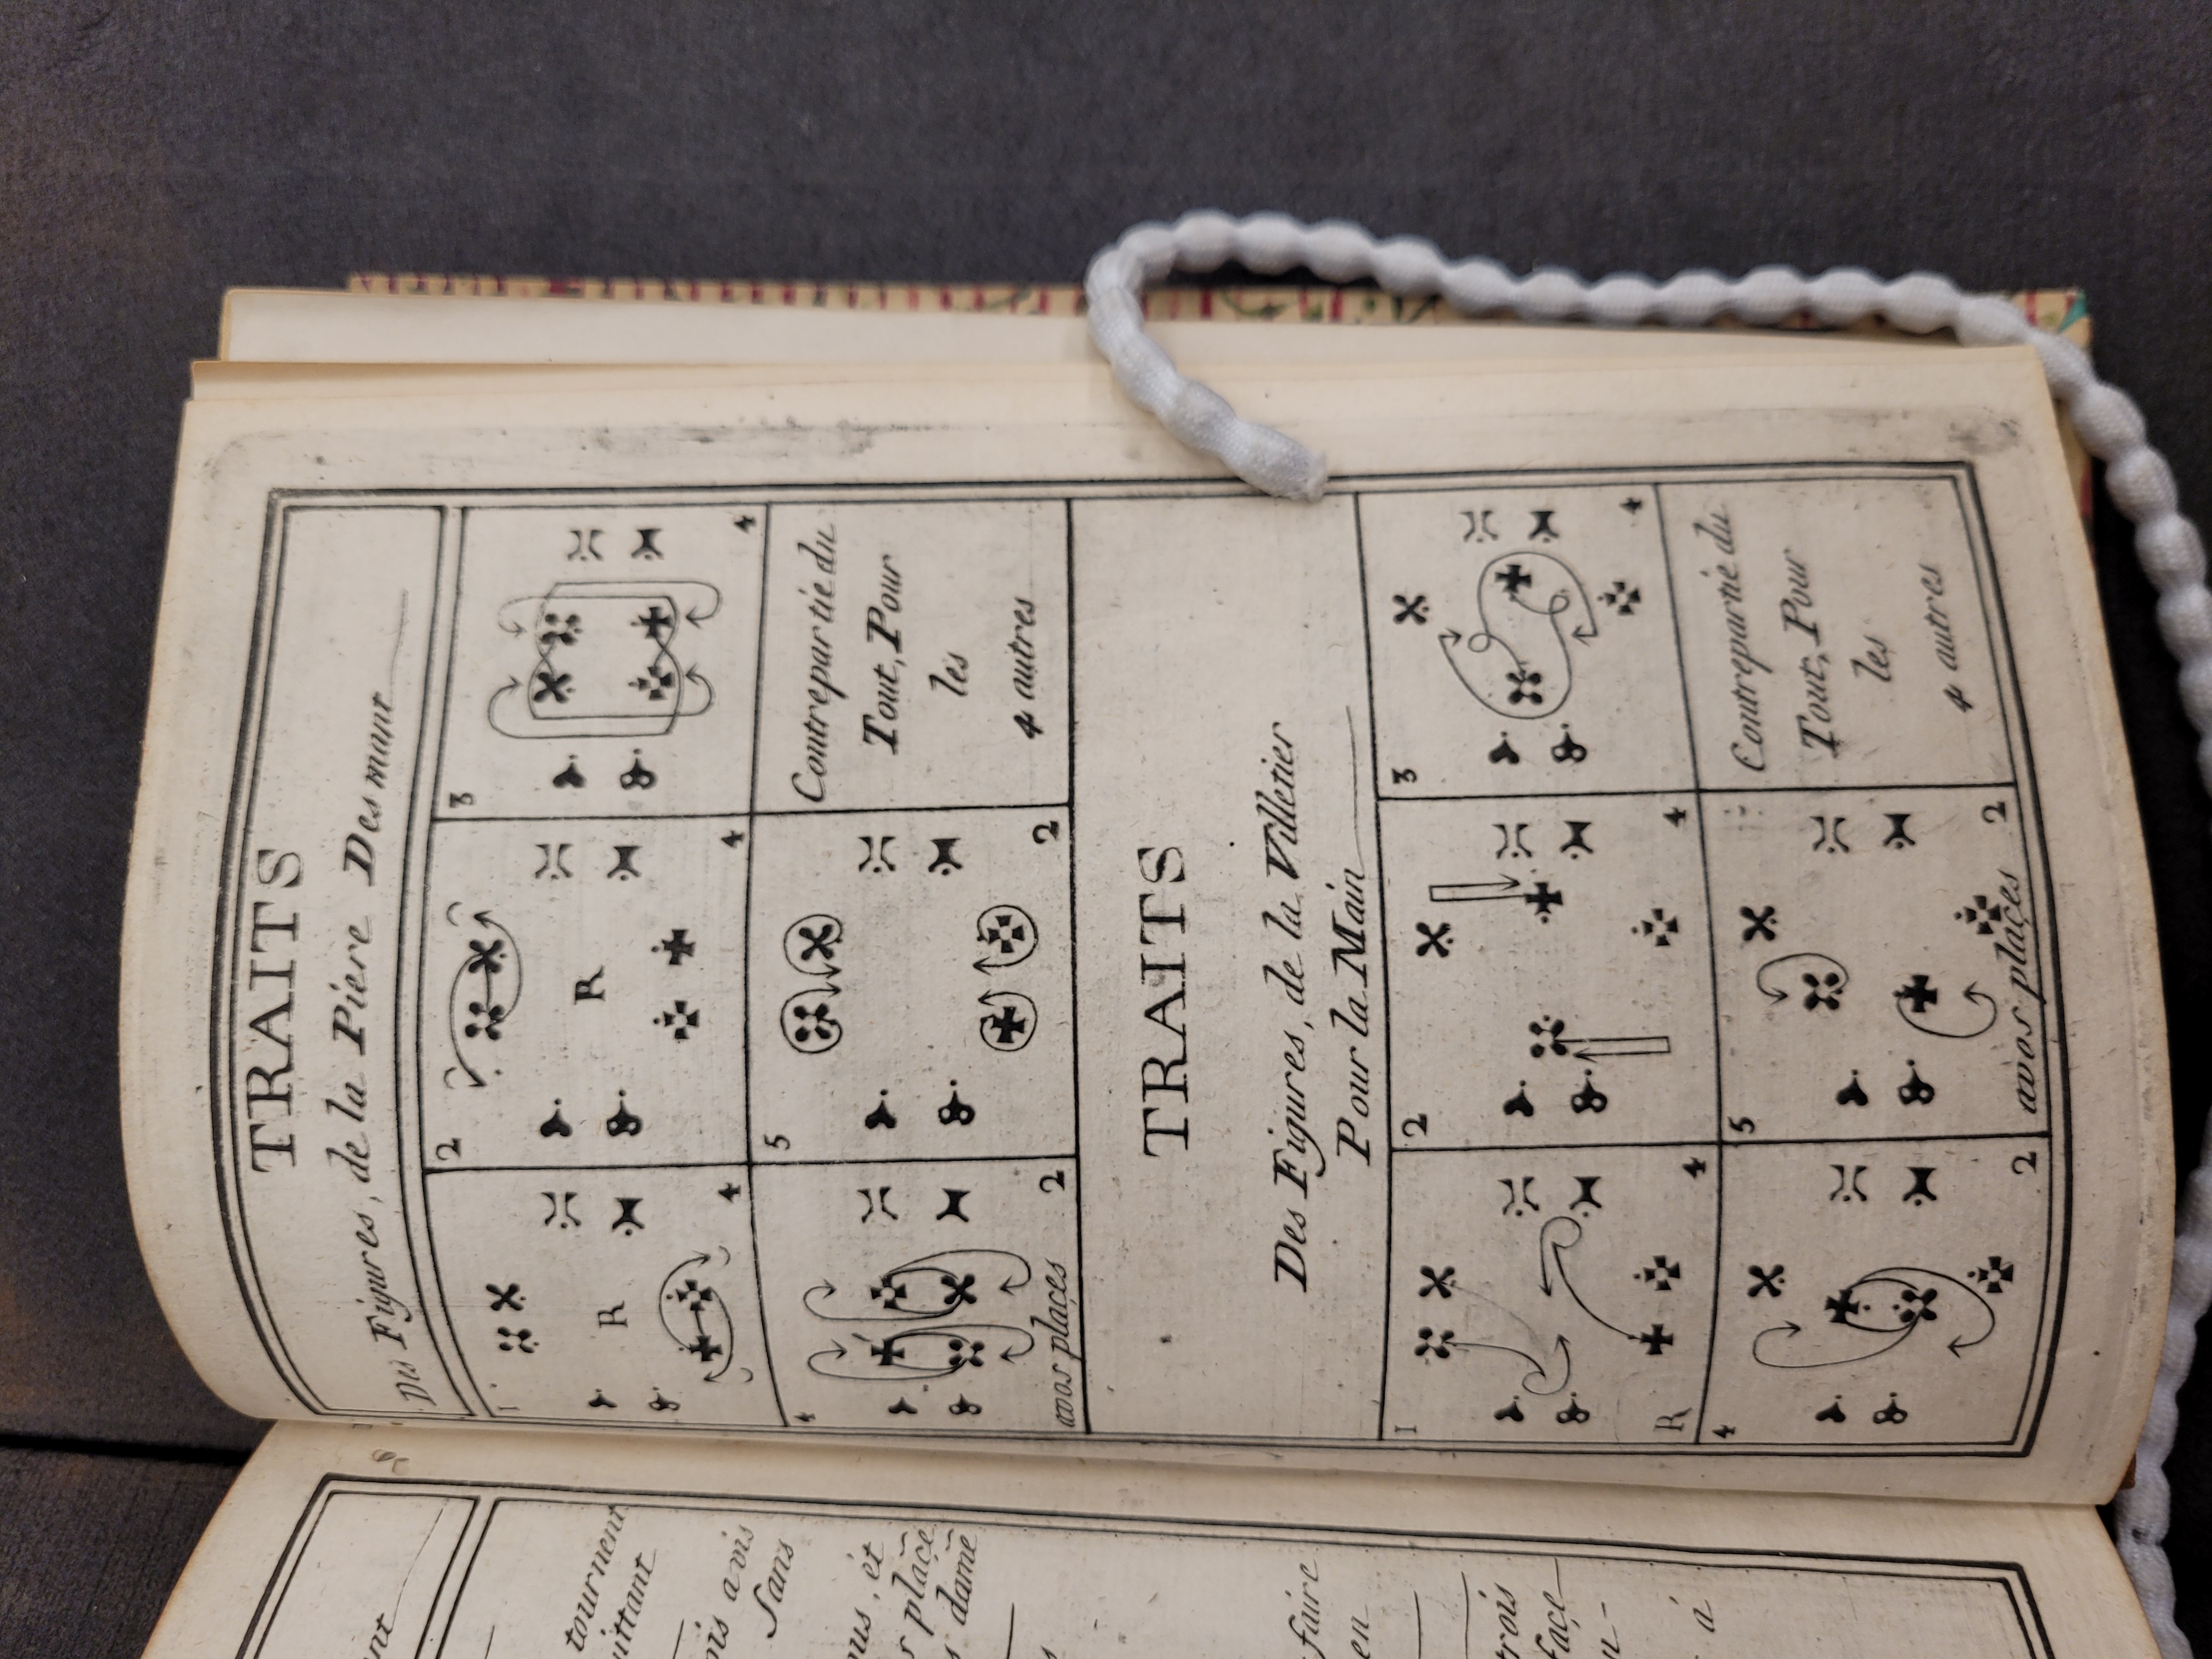 TRAITS
Des Figures, de la Piere Desmant
1
R
4
2
R
4
3
4
4
avos places
2
5
2
Contrepartie du
Tout, Pour
les
4 autres
TRAITS
Des Figures, de la Villetier
Pour la Main
1
R
4
2
4
3
4
4
2
5
avos places
2
Contrepartie du
Tout, Pour
les
4 autres
tournent
avis
Sans
place
dame
faire
en
trois
face
á